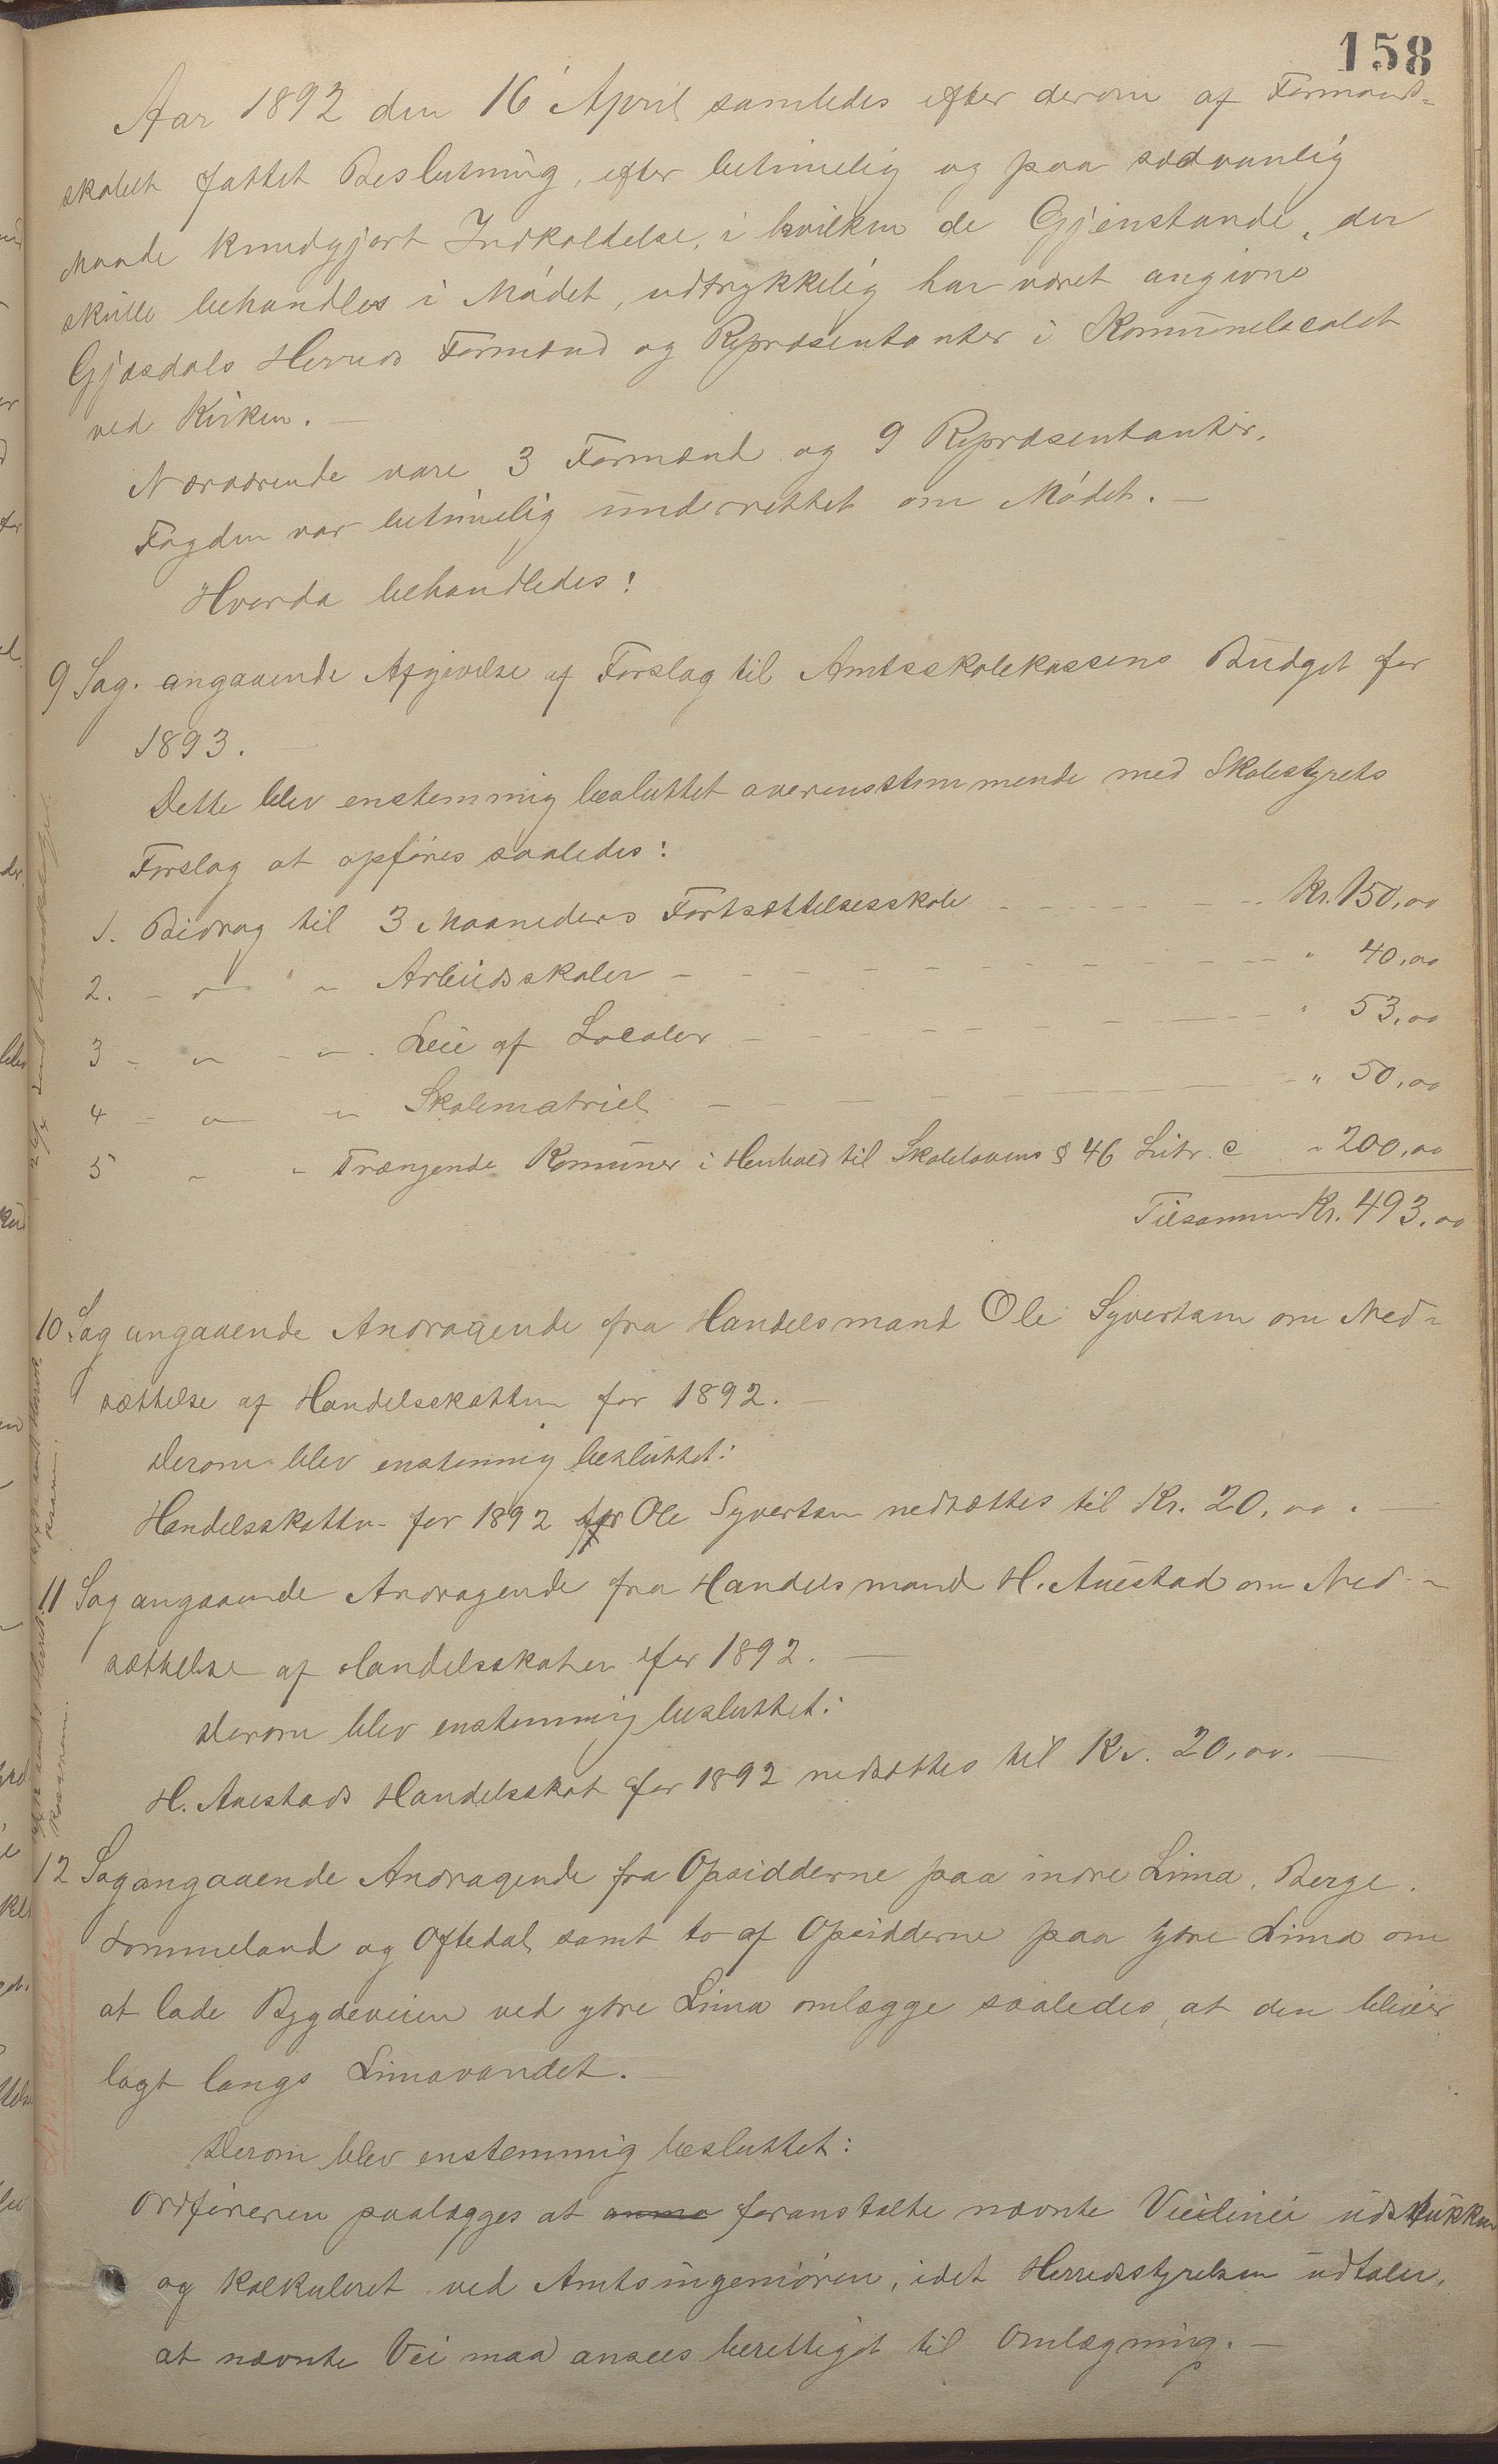 158
Aar 1892 den 16 April samledes efter derom af Formand-
skabet fattet Beslutning, efter betimelig og paa sædvanlig
Maade kundgjort Indkaldelse, i hvilken de Gjenstande, der
skulle behandles i Mødet, udtrykkelig har været angivne
Gjæsdals Herreds Formænd og Repræsentanter i Komunelocalet
ved Kirken. —
Nærværende vare 3 Formænd og 9 Repræsentanter.
Fogden var betimelig underrettet om Mødet. —
Hvorda behandledes:
9 Sag. angaaende Afgivelse af Forslag til Amtsskolekassens Budget for
1893.
Dette blev enstemmig besluttet overensstemmende med Skolestyrets
Forslag at opføres saaledes:
1. Bidrag til 3 Maaneders Fortsættelsesskole — Kr. 150,00
2. — " — " Arbeidsskoler — " 40,00
3 — " — " Leie af Localer — " 53,00
4 — " — " Skolematriel — " 50,00
5 " — " Trængende Komuner i Henhold til Skolelovens § 46 Litr. c " 200,00
Tilsammen Kr. 493.00
10 Sag angaaende Andragende fra Handelsmand Ole Syvertsen om Ned-
sættelse af Handelsskatten for 1892. —
Derom blev enstemmig besluttet:
Handelsskatten for 1892 for Ole Syvertsen nedsættes til Kr. 20,00. —
11 Sag angaaende Andragende fra Handelsmand H. Auestad om Ned-
sættelse af Handelsskaten for 1892. —
Derom blev enstemmig besluttet:
H. Auestads Handelsskat for 1892 nedsættes til Kr. 20,00. —
12 Sag angaaende Andragende fra Opsidderne paa indre Lima, Berge,
Lommeland og Oftedal samt to af Opsidderne paa ytre Lima om
at lade Bygdeveien ved ytre Lima omlægge saaledes, at den bliver
lagt langs Limavandet. —
Derom blev enstemmig besluttet:
Ordføreren paalægges at foranstalte nævnte Veilinei udstukken
og kalkuleret ved Amtsingeniøren, idet Herredsstyrelsen udtaler,
at nævnte Vei maa ansees berettiget til Omlægning. —